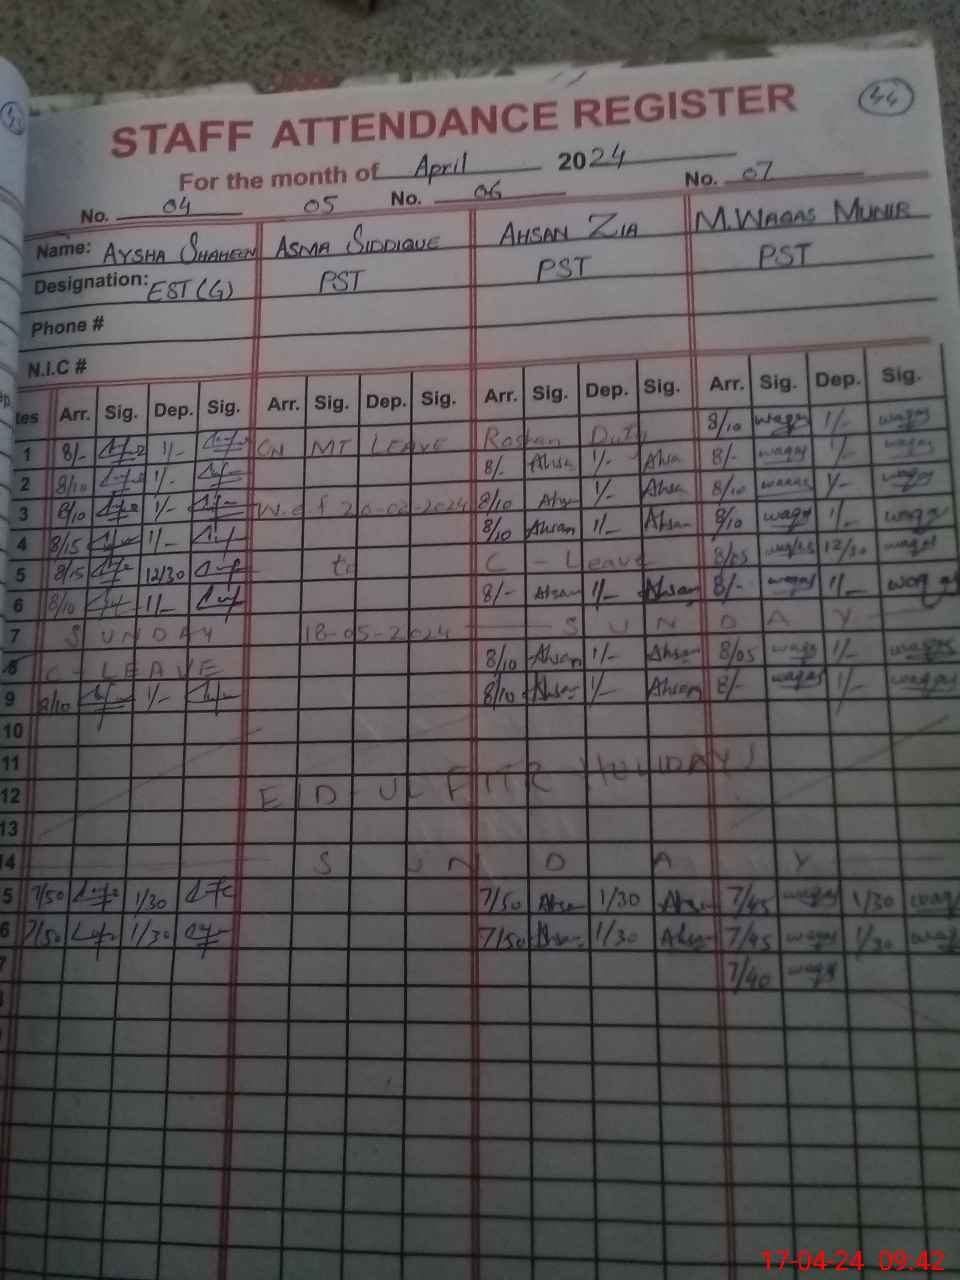 44
STAFF ATTENDANCE REGISTER
For the month of April 2024
No. 04 05 No. 06 No. 07
Name: AYSHA SHAHEEN ASMA SIDDIQUE AHSAN ZIA M. WAQAS MUNIR
Designation: EST (G) PST PST PST
Phone #
N.I.C #
tes Arr. Sig. Dep. Sig. Arr. Sig. Dep. Sig. Arr. Sig. Dep. Sig. Arr. Sig. Dep. Sig.
1 8/- 1/- ON MT LEAVE Roshan Duty 8/10 waqas 1/- waqas
2 8/10 1/- 8/- Ahsan 1/- Ahsan 8/- waqas 1/- waqas
3 8/10 1/- W.e.f 20-02-2024 8/10 Ahsan 1/- Ahsan 8/10 waqas 1/- waqas
4 8/15 1/- 8/10 Ahsan 1/- Ahsan 8/10 waqas 1/- waqas
5 8/15 12/30 to C - Leave 8/05 waqas 12/30 waqas
6 8/10 1/- 8/- Ahsan 1/- Ahsan 8/- waqas 1/- waqas
7 SUNDAY 18-05-2024 SUNDAY
8 C - LEAVE 8/10 Ahsan 1/- Ahsan 8/05 waqas 1/- waqas
9 8/10 1/- 8/10 Ahsan 1/- Ahsan 8/- waqas 1/- waqas
10
11
12 EID-UL FITR HOLIDAY
13
14 SUNDAY
5 7/50 1/30 7/50 Ahsan 1/30 Ahsan 7/45 waqas 1/30 waqas
6 7/50 1/30 7/50 Ahsan 1/30 Ahsan 7/45 waqas 1/30 waqas
7 7/40 waqas
17-04-24 09:42